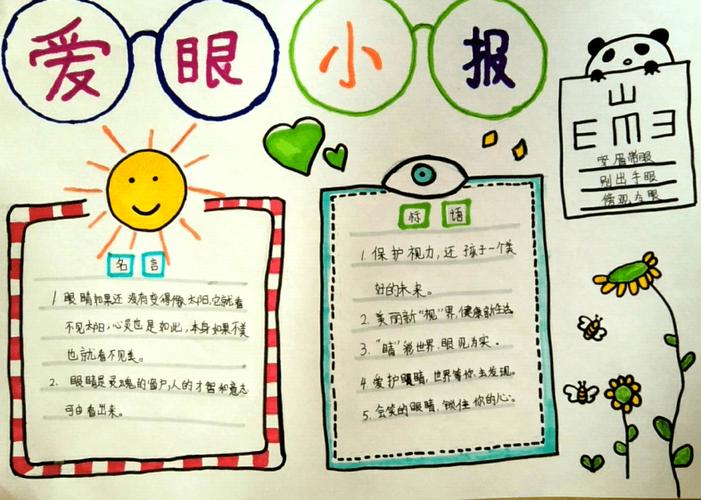 爱眼小报
山
E m 3
穿眉带眼
别出手眼
傍观者眼
名言
1 眼睛如果还没有变得像太阳,它就看
不见太阳,心灵也是如此,本身如果不美
也就看不见美。
2. 眼睛是灵魂的窗户,人的才智和意志
可由看出来。
标语
1. 保护视力,还孩子一个美
好的未来。
2. 美丽新“视”界,健康新生活
3. “睛”彩世界,眼见为实。
4 爱护眼睛,世界等你去发现。
5. 会笑的眼睛,锁住你的心。